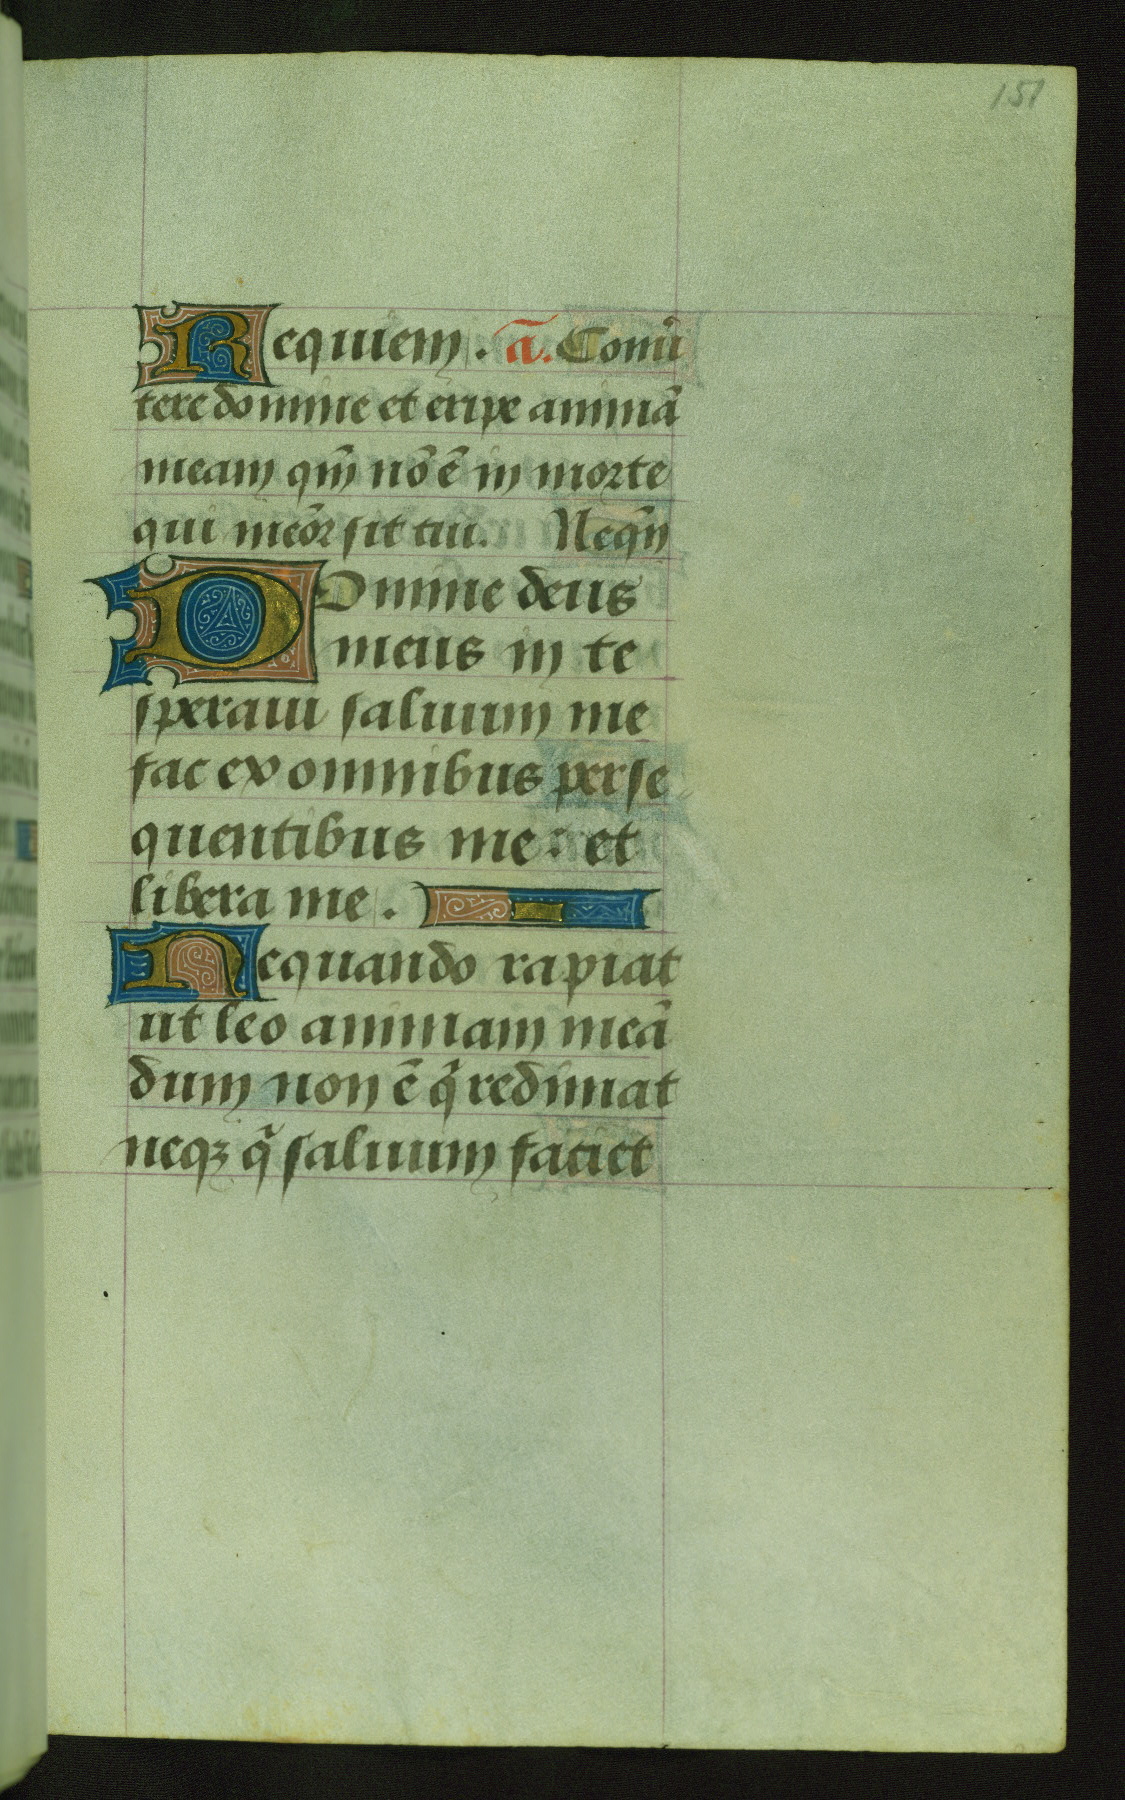 151
Requiem. a͞. Conu̅
tere domine et eripe animā
meam qm̄ nō ē in morte
qui meōr sit tui. Neqn̄
Domine deus
meus in te
speraui saluum me
fac ex omnibus perse
quentibus me: et
libera me.
Nequando rapiat
ut leo animam meā
dum non ē q̄ redimat
neqꝫ q̄ saluum faciet